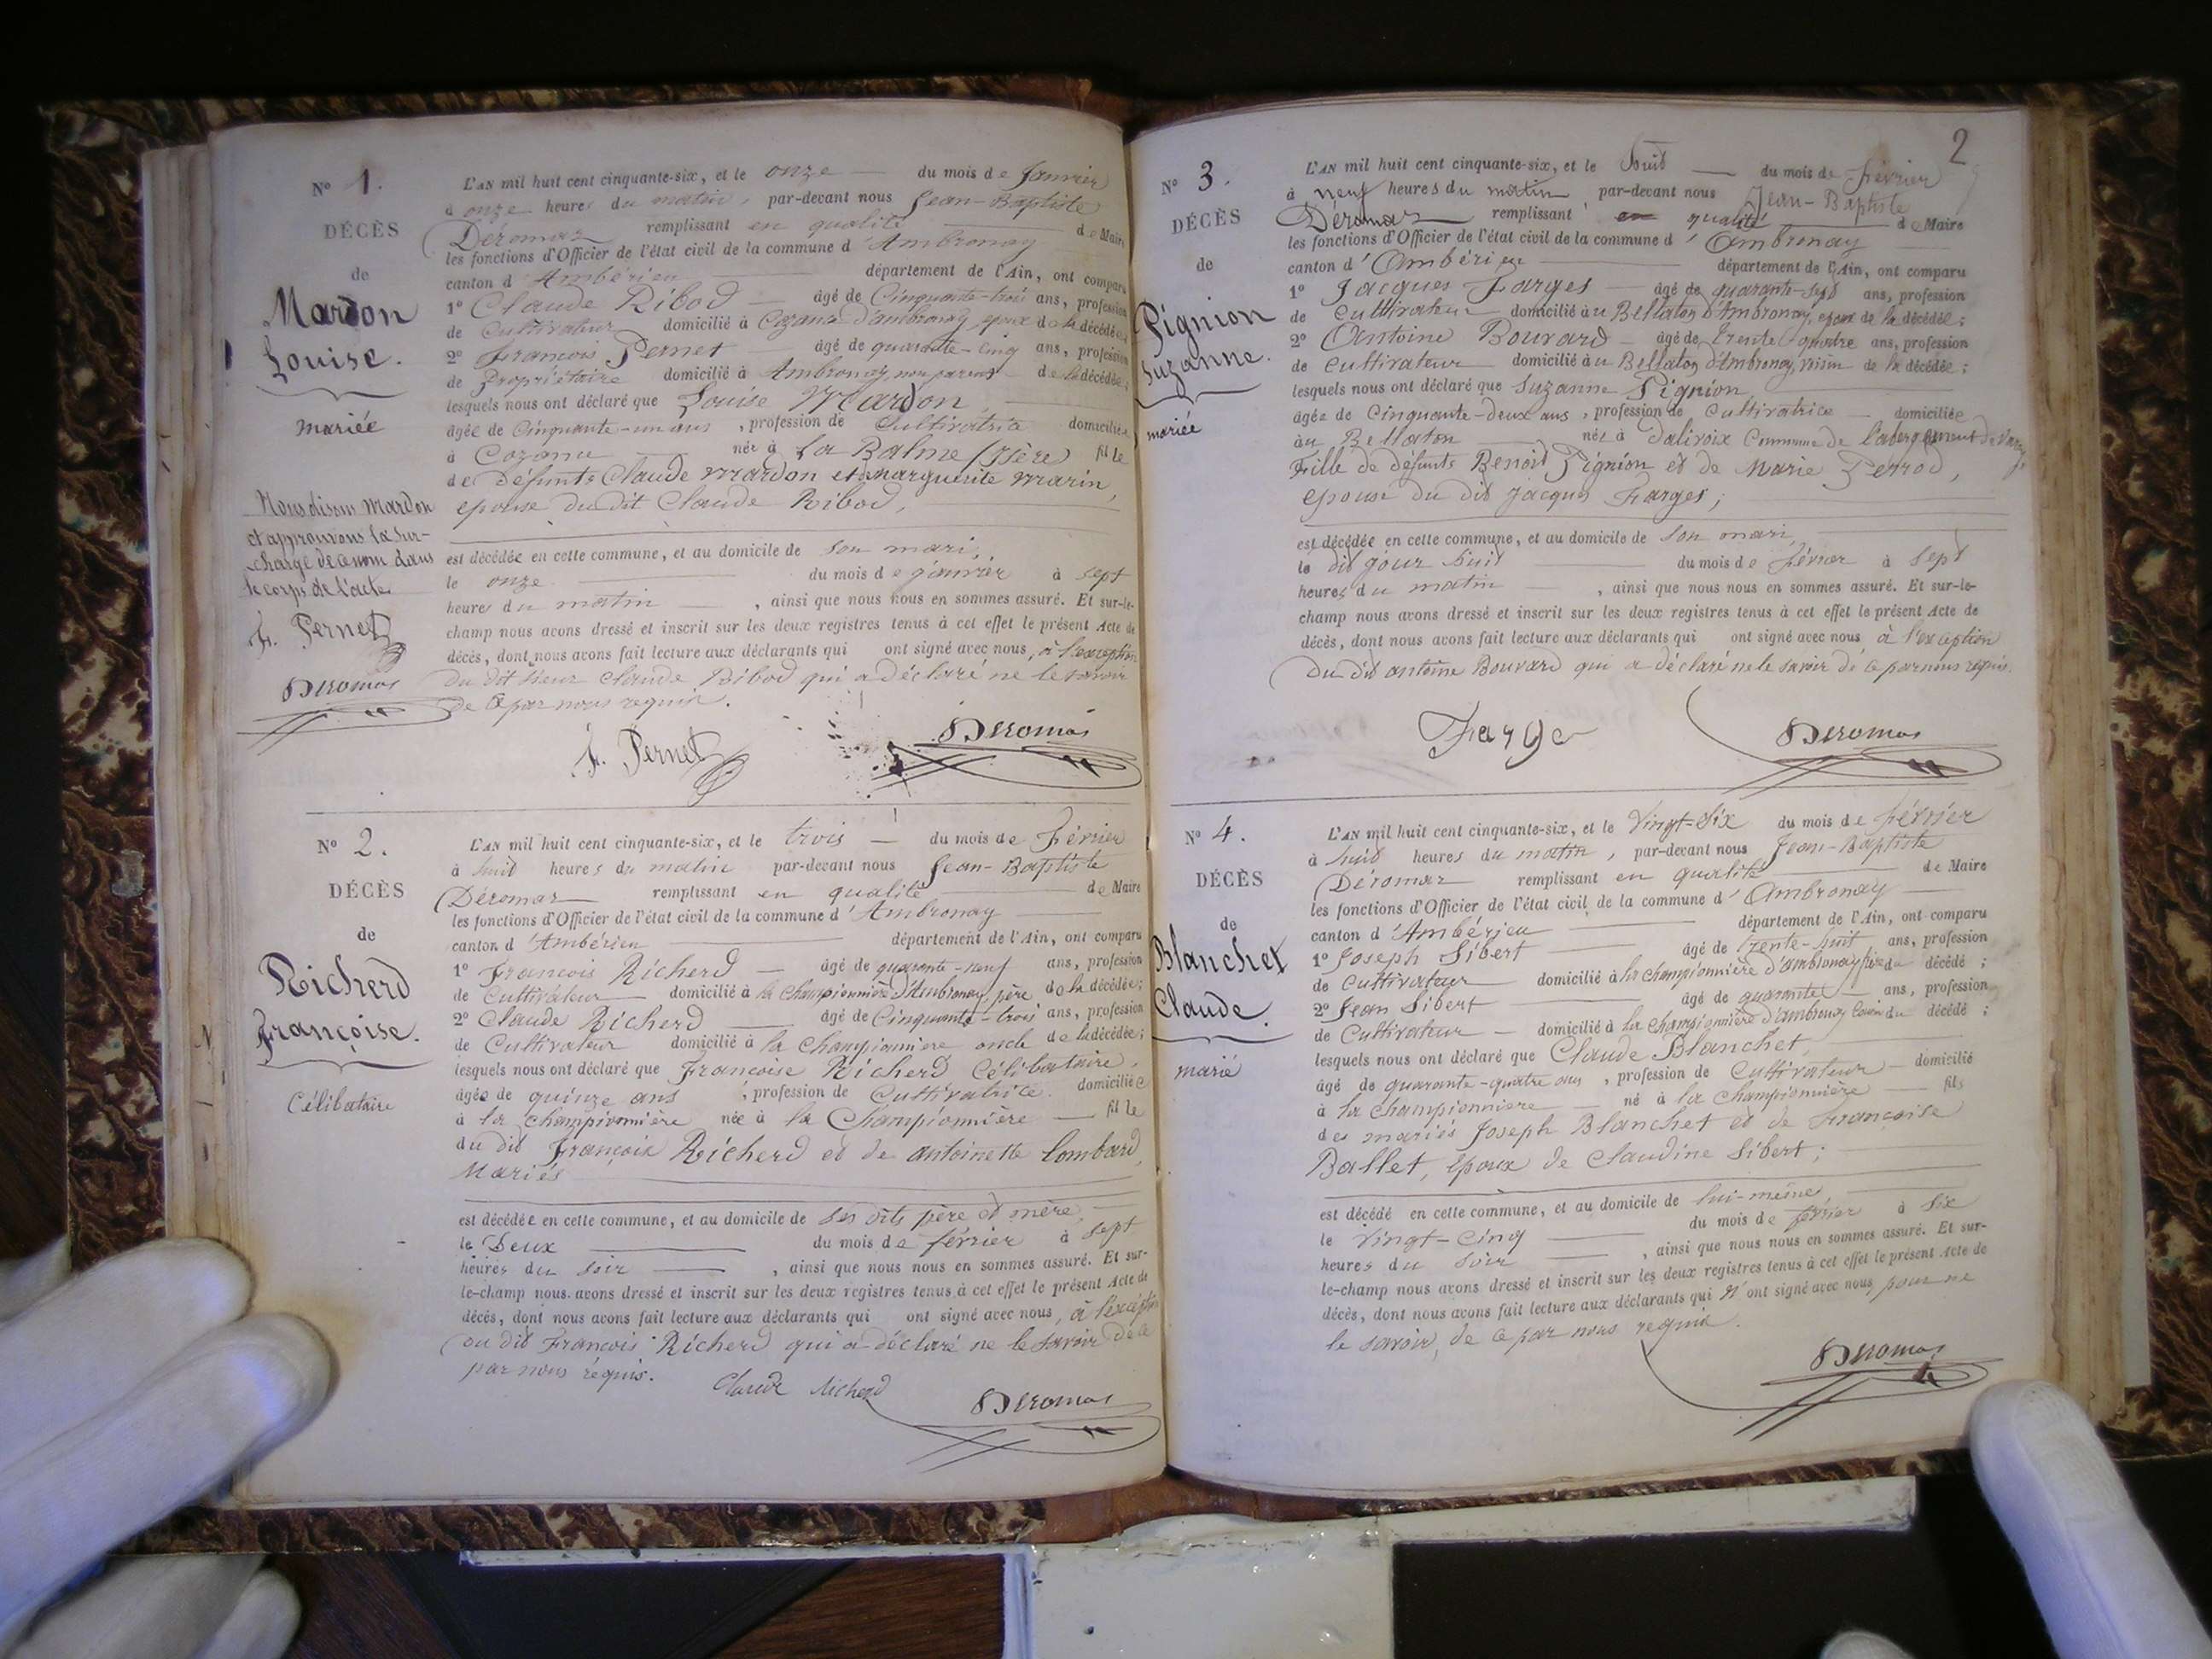 N° 1.
DÉCÈS
de
Mardon
Louise.
mariée
Nous disons Mardon
et approuvons la sur-
charge de ce nom dans
le corps de l'acte
F. Pernet
Deromas
L'AN mil huit cent cinquante-six, et le onze du mois de Janvier
à onze heures du matin, par-devant nous Jean-Baptiste
Déromas remplissant en qualité de Maire
les fonctions d'Officier de l'état civil de la commune d'Ambronay
canton d'Ambérieu département de l'Ain, ont comparu
1° Claude Ribod âgé de Cinquante-trois ans, profession
de Cultivateur domicilié à Cozance d'ambronay epoux de la décédée
2° François Pernet âgé de quarante-cinq ans, profession
de Propriétaire domicilié à Ambronay, non parent de la décédée;
lesquels nous ont déclaré que Louise Mardon
âgée de Cinquante-un ans, profession de Cultivatrice domiciliée
à Cozance née à La Balme (Isère) fille
de défunts Claude Mardon et Marguerite Marin,
epouse du dit Claude Ribod,
est décédée en cette commune, et au domicile de son mari,
le onze du mois de janvier à sept
heures du matin, ainsi que nous nous en sommes assuré. Et sur-le-
champ nous avons dressé et inscrit sur les deux registres tenus à cet effet le présent Acte de
décès, dont nous avons fait lecture aux déclarants qui ont signé avec nous, à l'exception
du dit sieur Claude Ribod qui a déclaré ne le savoir
de ce par nous requis.
F. Pernet Deromas
N° 2.
DÉCÈS
de
Richerd
Françoise.
Célibataire
L'AN mil huit cent cinquante-six, et le trois du mois de Février
à huit heures du matin par-devant nous Jean-Baptiste
Déromas remplissant en qualité de Maire
les fonctions d'Officier de l'état civil de la commune d'Ambronay
canton d'Ambérieu département de l'Ain, ont comparu
1° François Richerd âgé de quarante-neuf ans, profession
de Cultivateur domicilié à la Championnière d'Ambronay, père de la décédée;
2° Claude Richerd âgé de Cinquante-trois ans, profession
de Cultivateur domicilié à la Championniere oncle de la décédée;
lesquels nous ont déclaré que Françoise Richerd Célibataire,
âgée de quinze ans, profession de Cultivatrice. domiciliée
à la Championnière née à la Championnière fille
du dit François Richerd et de antoinette Lombard,
Mariés
est décédée en cette commune, et au domicile de ses dits père et mère,
le Deux du mois de février à sept
heures du soir, ainsi que nous nous en sommes assuré. Et sur-
le-champ nous avons dressé et inscrit sur les deux registres tenus à cet effet le présent Acte de
décès, dont nous avons fait lecture aux déclarants qui ont signé avec nous, à l'exception
du dit François Richerd qui a déclaré ne le savoir de ce
par nous requis.
Claude Richerd Deromas
2
N° 3.
DÉCÈS
de
Pignion
Suzanne.
mariée
L'AN mil huit cent cinquante-six, et le huit du mois de Février
à neuf heures du matin par-devant nous Jean-Baptiste
Déromas remplissant en qualité de Maire
les fonctions d'Officier de l'état civil de la commune d'Ambronay
canton d'Ambérieu département de l'Ain, ont comparu
1° Jacques Farges âgé de quarante-sept ans, profession
de Cultivateur domicilié au Bellaton d'Ambronay, epoux de la décédée;
2° Antoine Bouvard âgé de trente quatre ans, profession
de Cultivateur domicilié au Bellaton d'Ambronay, voisin de la décédée;
lesquels nous ont déclaré que Suzanne Pignion
âgée de Cinquante-deux ans, profession de Cultivatrice domiciliée
au Bellaton née à Dalivoix Commune de l'abergement de Varey,
Fille de défunts Benoit Pignion et de Marie Perrod,
epouse du dit Jacques Farges;
est décédée en cette commune, et au domicile de son mari,
le dit jour huit du mois de Février à Sept
heures du matin, ainsi que nous nous en sommes assuré. Et sur-le-
champ nous avons dressé et inscrit sur les deux registres tenus à cet effet le présent Acte de
décès, dont nous avons fait lecture aux déclarants qui ont signé avec nous à l'exception
Du dit antoine Bouvard qui a déclaré ne le savoir de ce par nous requis.
Farge Deromas
N° 4.
DÉCÈS
de
Blanchet
Claude.
marié
L'AN mil huit cent cinquante-six, et le Vingt-Six du mois de février
à huit heures du matin, par-devant nous Jean-Baptiste
Déromas remplissant en qualité de Maire
les fonctions d'Officier de l'état civil de la commune d'Ambronay
canton d'Ambérieu département de l'Ain, ont comparu
1° Joseph Sibert âgé de trente-huit ans, profession
de Cultivateur domicilié à la Championnière d'ambronay, frère du décédé;
2° Jean Sibert âgé de quarante ans, profession
de Cultivateur domicilié à la Championnière d'ambronay Cousin du décédé;
lesquels nous ont déclaré que Claude Blanchet,
âgé de quarante-quatre ans, profession de Cultivateur domicilié
à la Championniere né à la Championnière fils
des mariés Joseph Blanchet et de Françoise
Ballet, epoux de Claudine Sibert;
est décédé en cette commune, et au domicile de lui-même,
le Vingt-Cinq du mois de février à Six
heures du Soir, ainsi que nous nous en sommes assuré. Et sur-
le-champ nous avons dressé et inscrit sur les deux registres tenus à cet effet le présent Acte de
décès, dont nous avons fait lecture aux déclarants qui n'ont signé avec nous pour ne
le savoir, de ce par nous requis.
Deromas